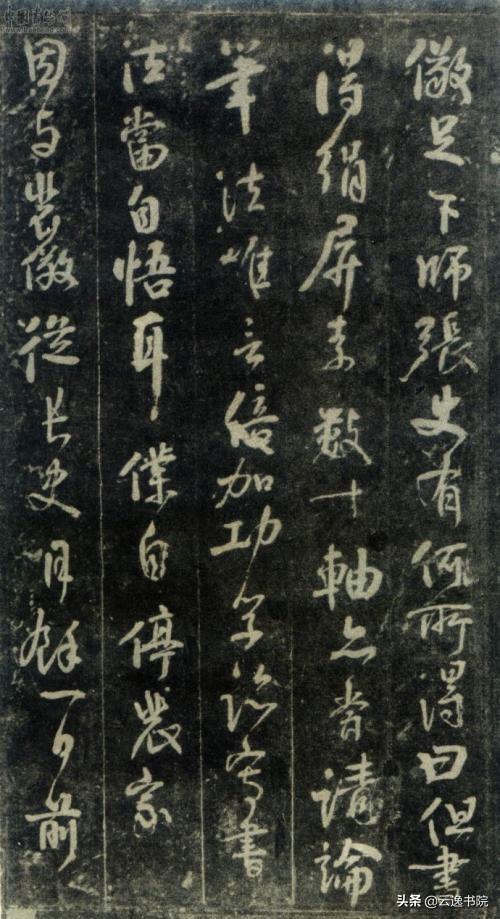 儆足下師張史有何所得曰但書
得絹屏素數十軸亦嘗請論
筆法唯言倍加功學臨寫書
法當自悟耳僕自停裴家
因与裴儆從長史月餘一日前
头条 @云逸书院